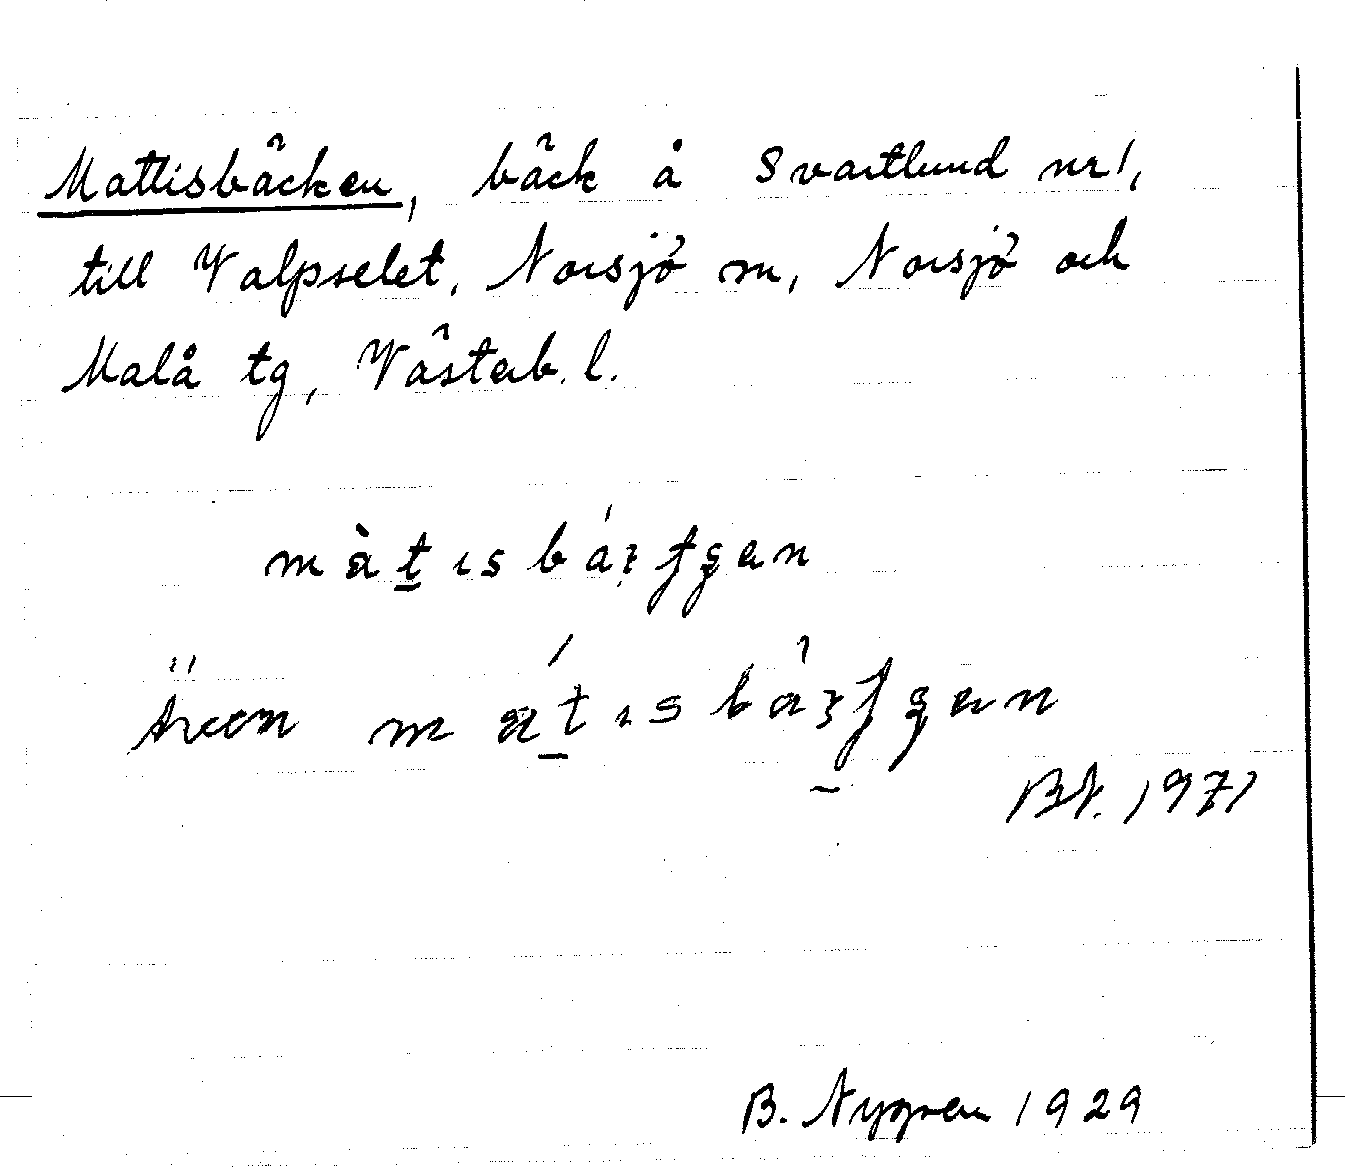 Mattisbäcken, bäck å Svartlund nr 1,
till Valpselet, Norsjö sn, Norsjö och
Malå tg, Västerb. l.
Även
1971
B. Nygren 1929